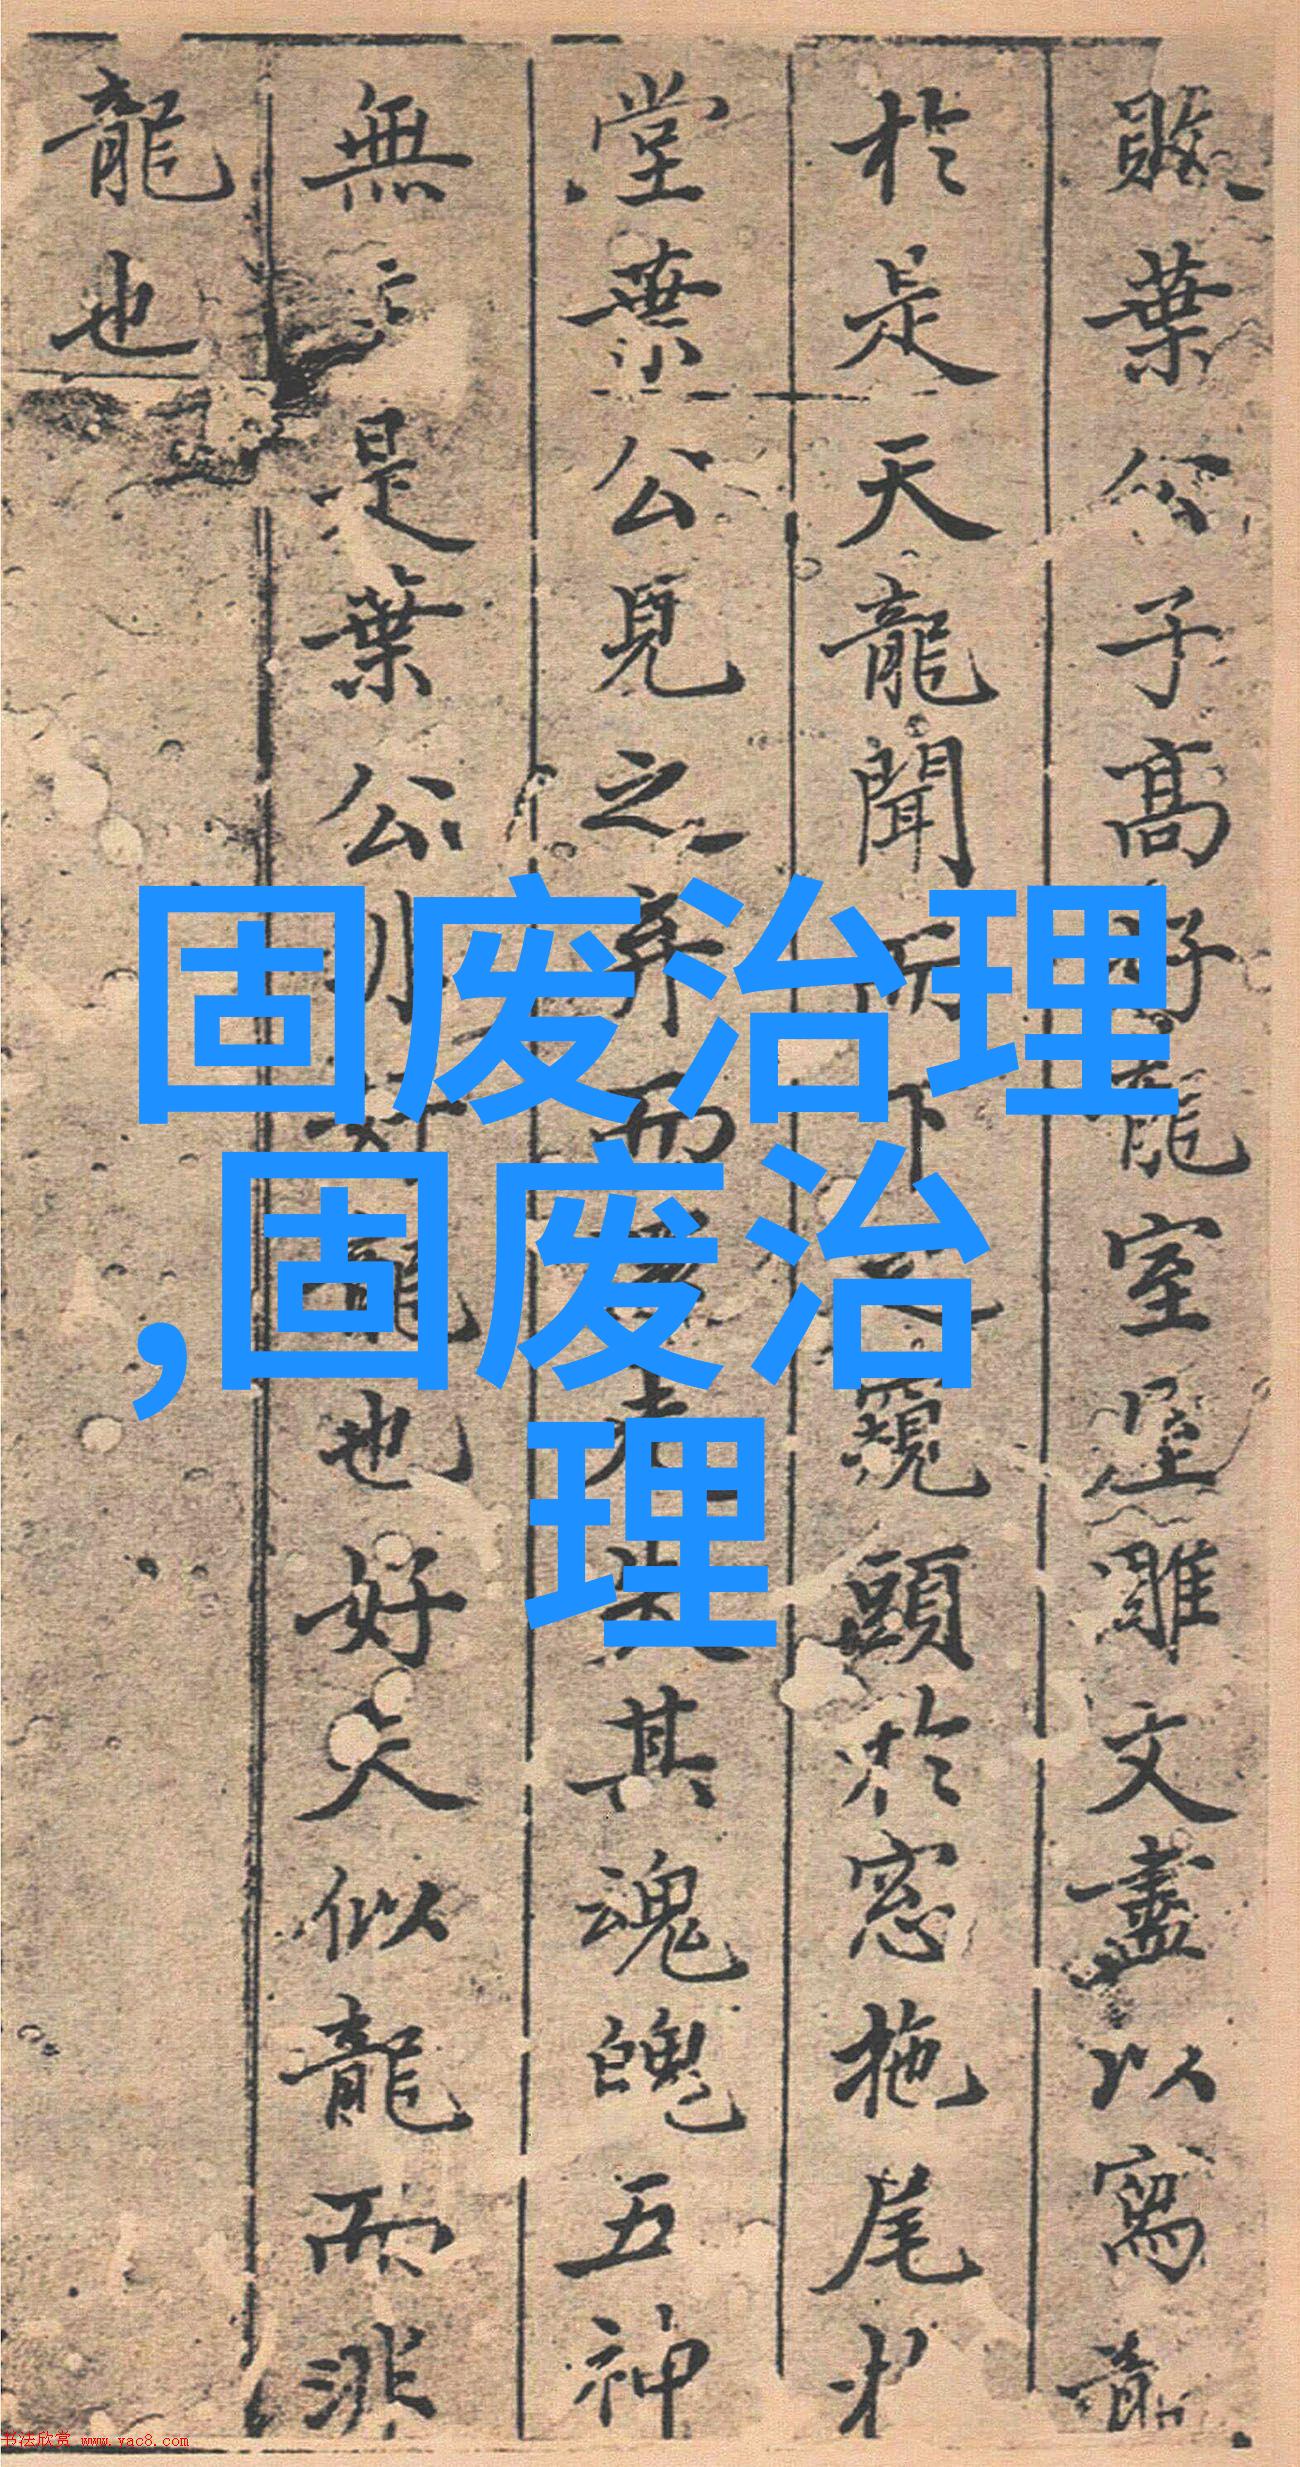 固废治理
,固废治
理
敗葉公子高好龍室屋雕文盡以寫龍
於是天龍聞而下之窺頭於窓拖尾於
堂葉公見之弃而還走失其魂魄五神
無主是葉公非好龍也好夫似龍而非
龍也
书法欣赏 www.yac8.com